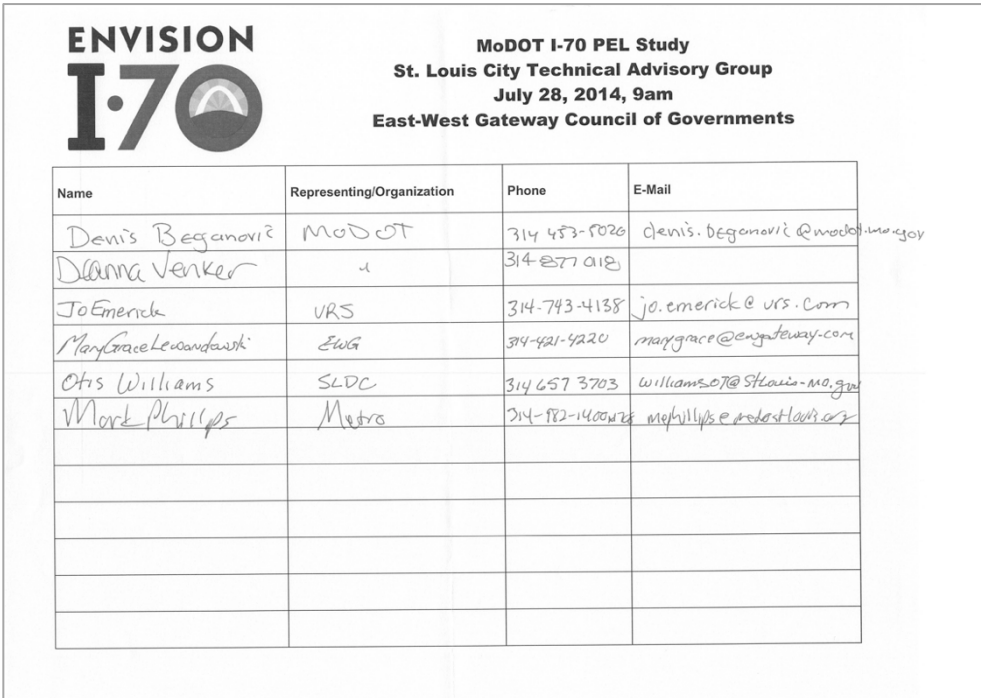 ENVISION
I-70
MoDOT I-70 PEL Study
St. Louis City Technical Advisory Group
July 28, 2014, 9am
East-West Gateway Council of Governments
Name Representing/Organization Phone E-Mail
Denis Beganović MoDOT 314 453-5026 denis.beganovic@modot.mo.gov
Deanna Venker " 314 877 0118
Jo Emerick URS 314-743-4138 jo.emerick@urs.com
MaryGrace Lewandowski EWG 314-421-4220 marygrace@ewgateway.com
Otis Williams SLDC 314 657 3703 williamsOT@StLouis-MO.gov
Mark Phillips Metro mephillips@metrostlouis.org